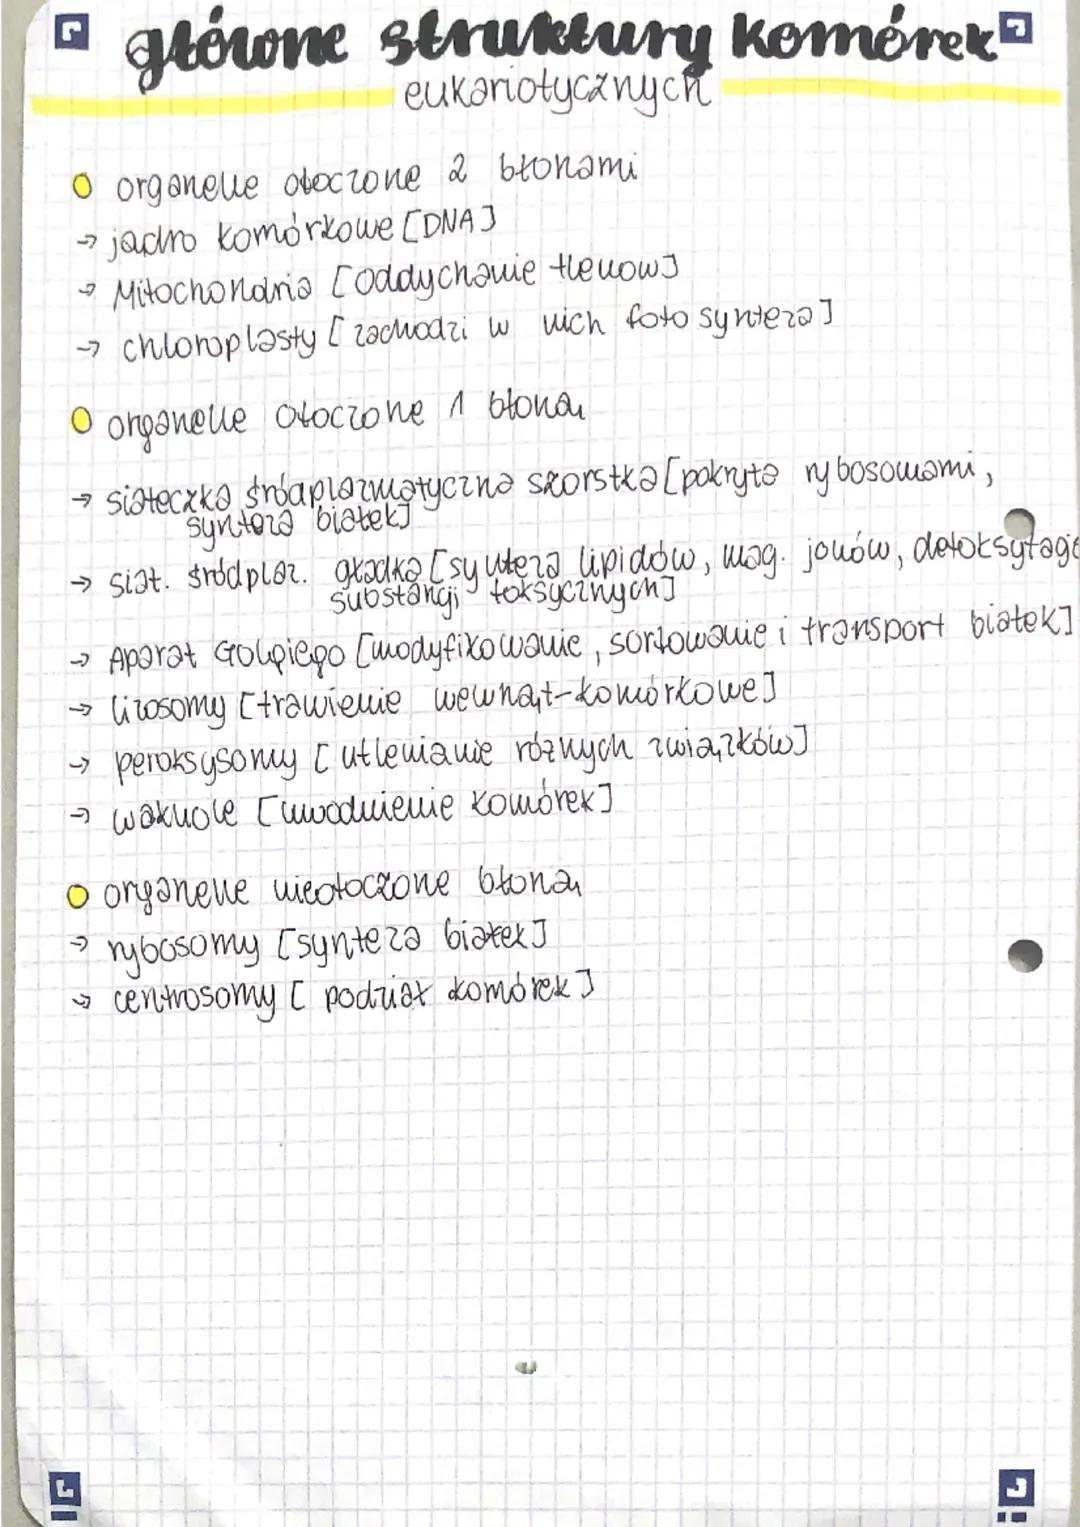 główne struktury komórek
eukariotycznych
organelle otoczone 2 błonami
→ jądro komórkowe [DNA]
→ Mitochondria [oddychanie tlenow]
→ chloroplasty [zachodzi w nich fotosynteza]
organelle otoczone 1 błoną
→ siateczka śródplazmatyczna szorstka [pokryta rybosomami,
synteza białek]
→ siat. śródplaz. gładka [synteza lipidów, mag. jonów,
substancji toksycznych]
→ Aparat Golgiego [modyfikowanie, sortowanie i transport białek]
→ lizosomy [trawienie wewnąt-komórkowe]
→ peroksysomy [utlenianie różnych związków]
→ wakuole [uwodnienie komórek]
organelle nieotoczone błoną
→ rybosomy [synteza białek]
→ centrosomy [podział komórek]